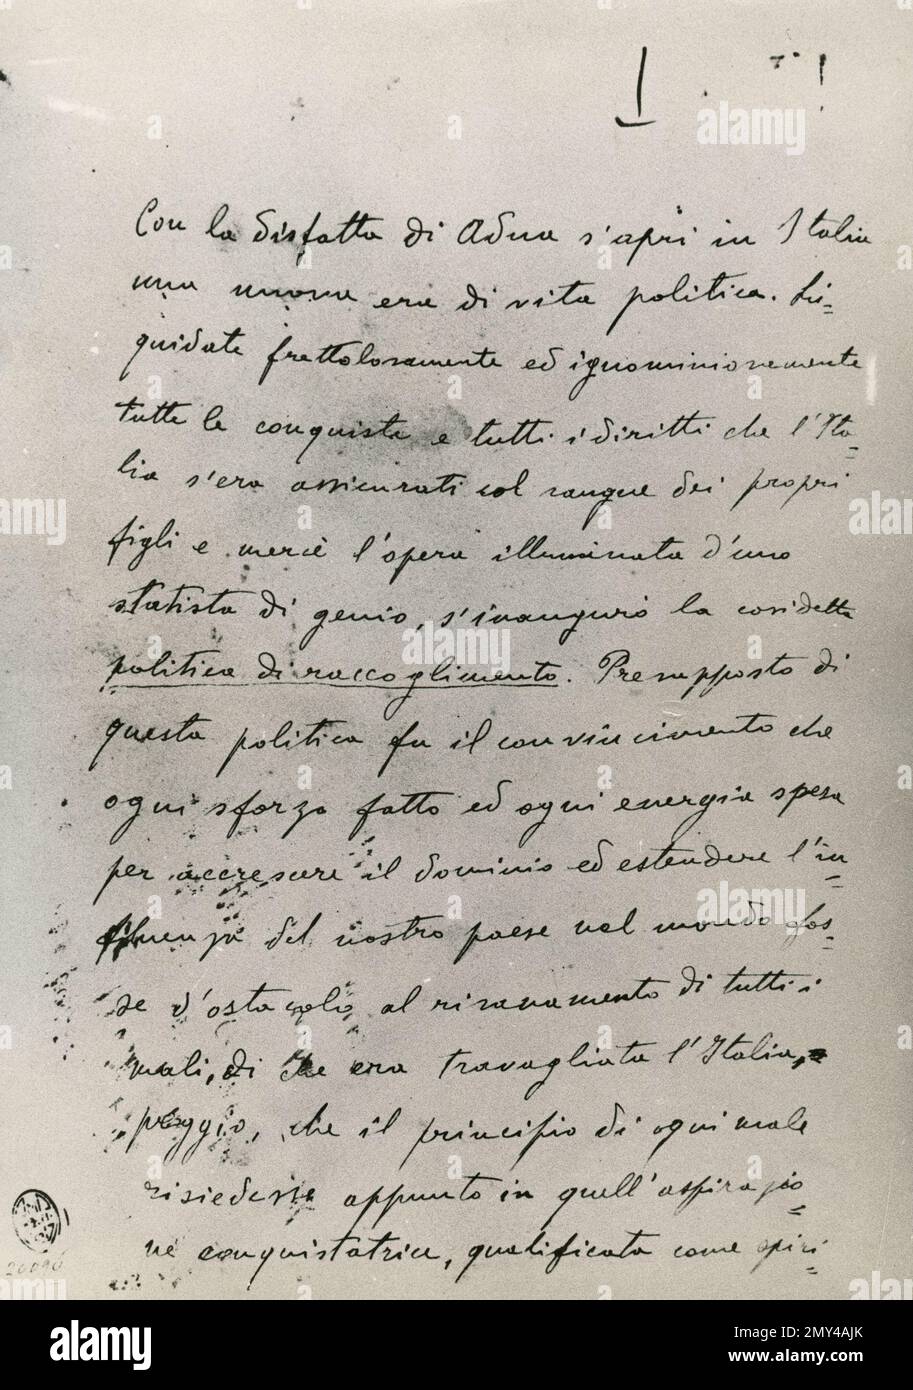 1
Con la disfatta di Adua s'aprì in Italia
una nuova era di vita politica. Li=
quidate frettolosamente ed ignominiosemente
tutte le conquiste e tutti i diritti che l'Ita=
lia s'era assicurati col sangue dei propri
figli e mercè l'opera illuminata d'uno
statista di genio, s'inaugurò la cosidetta
politica di raccoglimento. Presupposto di
questa politica fu il convincimento che
ogni sforzo fatto ed ogni energia spesa
per accrescere il dominio ed estendere l'in=
fluenza del nostro paese nel mondo fos=
se d'ostacolo al risanamento di tutti i
mali, di che era travagliata l'Italia,
peggio, che il principio di ogni male
risiedesse appunto in quell'aspirazio=
ne conquistatrice, qualificata come spiri=
alamy
alamy
alamy
alamy
alamy
alamy
Image ID: 2MY4AJK
www.alamy.com